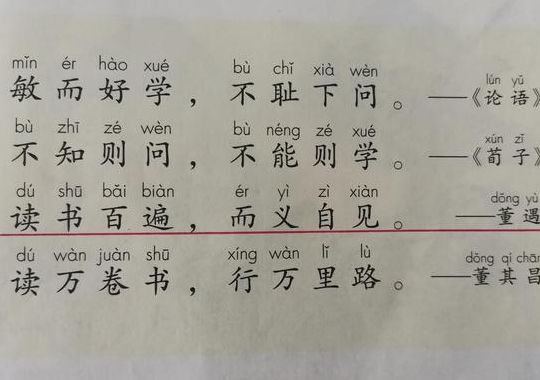 mǐn ér hào xué bù chǐ xià wèn lún yǔ
敏而好学，不耻下问。——《论语》
bù zhī zé wèn bù néng zé xué xún zǐ
不知则问，不能则学。——《荀子》
dú shū bǎi biàn ér yì zì xiàn dǒng yù
读书百遍，而义自见。——董遇
dú wàn juàn shū xíng wàn lǐ lù dǒng qí chāng
读万卷书，行万里路。——董其昌